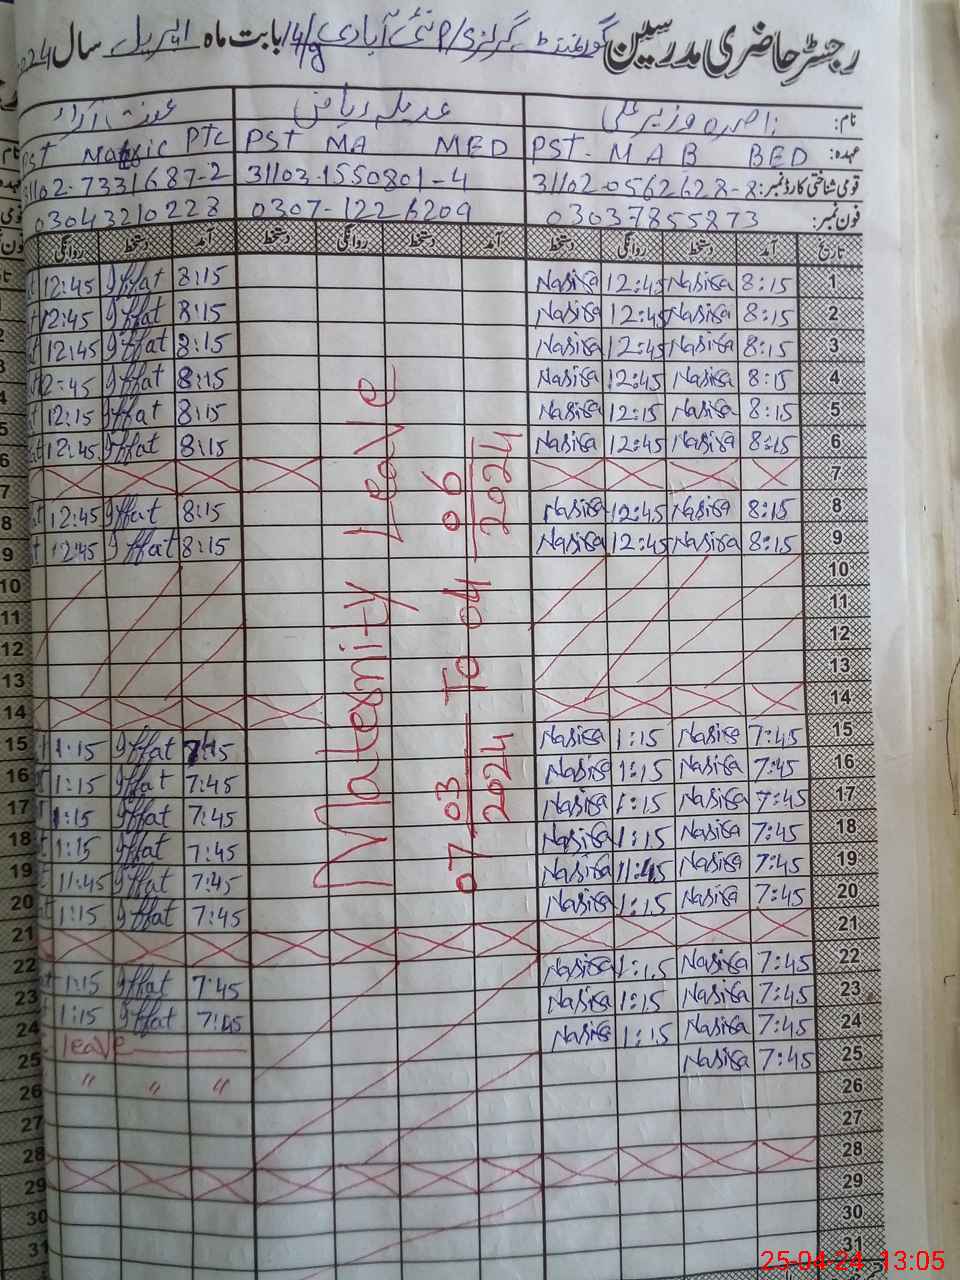 رجسٹر حاضری مدرسین گورنمنٹ گرلز P/S نئی آبادی 4/g بابت ماہ اپریل سال 2024
نام: ناصرہ وزیر علی عدیلہ ریاض عفت آراء
عہدہ: PST. M A B BED PST MA MED PST Matric PTC
قومی شناختی کارڈ نمبر: 31102-0562628-8 31103-1550801-4 31102-7331687-2
فون نمبر: 03037855873 0307-1226209 03043210228
تاریخ آمد دستخط روانگی دستخط آمد دستخط روانگی دستخط آمد دستخط روانگی
1 8:15 Nasira 12:45 Nasira 8:15 Iffat 12:45
2 8:15 Nasira 12:45 Nasira 8:15 Iffat 12:45
3 8:15 Nasira 12:45 Nasira 8:15 Iffat 12:45
4 8:15 Nasira 12:45 Nasira 8:15 Iffat 12:45
5 8:15 Nasira 12:15 Nasira 8:15 Iffat 12:15
6 8:15 Nasira 12:45 Nasira 8:15 Iffat 12:45
7
8 8:15 Nasira 12:45 Nasira 8:15 Iffat 12:45
9 8:15 Nasira 12:45 Nasira 8:15 Iffat 12:45
10
11
12
13
14
15 7:45 Nasira 1:15 Nasira 7:45 Iffat 1:15
16 7:45 Nasira 1:15 Nasira 7:45 Iffat 1:15
17 7:45 Nasira 1:15 Nasira 7:45 Iffat 1:15
18 7:45 Nasira 1:15 Nasira 7:45 Iffat 1:15
19 7:45 Nasira 11:45 Nasira 7:45 Iffat 11:45
20 7:45 Nasira 1:15 Nasira 7:45 Iffat 1:15
21
22 7:45 Nasira 1:15 Nasira 7:45 Iffat 1:15
23 7:45 Nasira 1:15 Nasira 7:45 Iffat 1:15
24 7:45 Nasira 1:15 Nasira leave
25 7:45 Nasira " " "
26
27
28
29
30
31
Maternity Leave
07-03-2024 To 04-06-2024
25-04-24 13:05